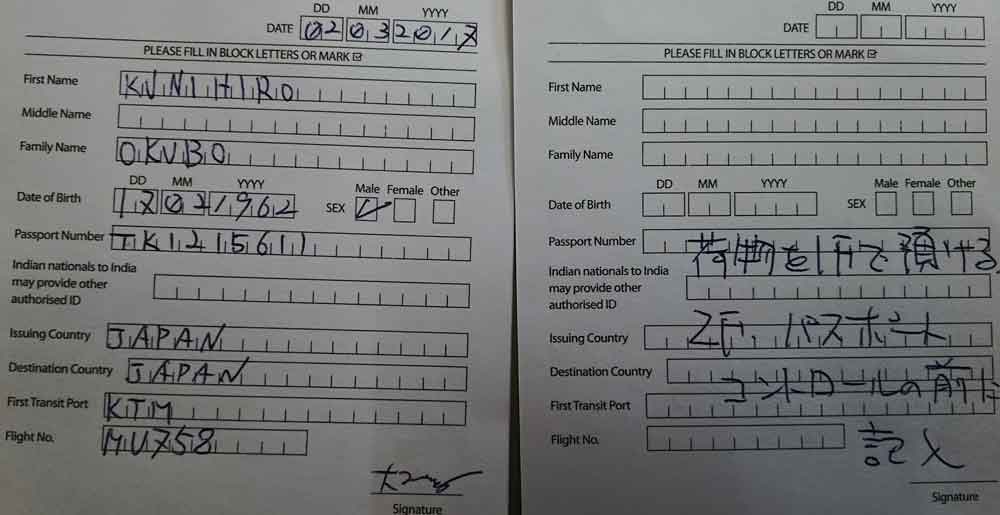 DD MM YYYY
DATE 02 03 2017
PLEASE FILL IN BLOCK LETTERS OR MARK ☑
First Name KUNIHIRO
Middle Name
Family Name OKUBO
DD MM YYYY
Male Female Other
Date of Birth 17021962 SEX
Passport Number TK1215611
Indian nationals to India
may provide other
authorised ID
Issuing Country JAPAN
Destination Country JAPAN
First Transit Port KTM
Flight No. MU758
Signature
DD MM YYYY
DATE
PLEASE FILL IN BLOCK LETTERS OR MARK ☑
First Name
Middle Name
Family Name
DD MM YYYY
Male Female Other
Date of Birth SEX
Passport Number 荷物を1Fで預ける
Indian nationals to India
may provide other
authorised ID
Issuing Country 2F、パスポート
Destination Country コントロールの前に
First Transit Port
Flight No. 記入
Signature